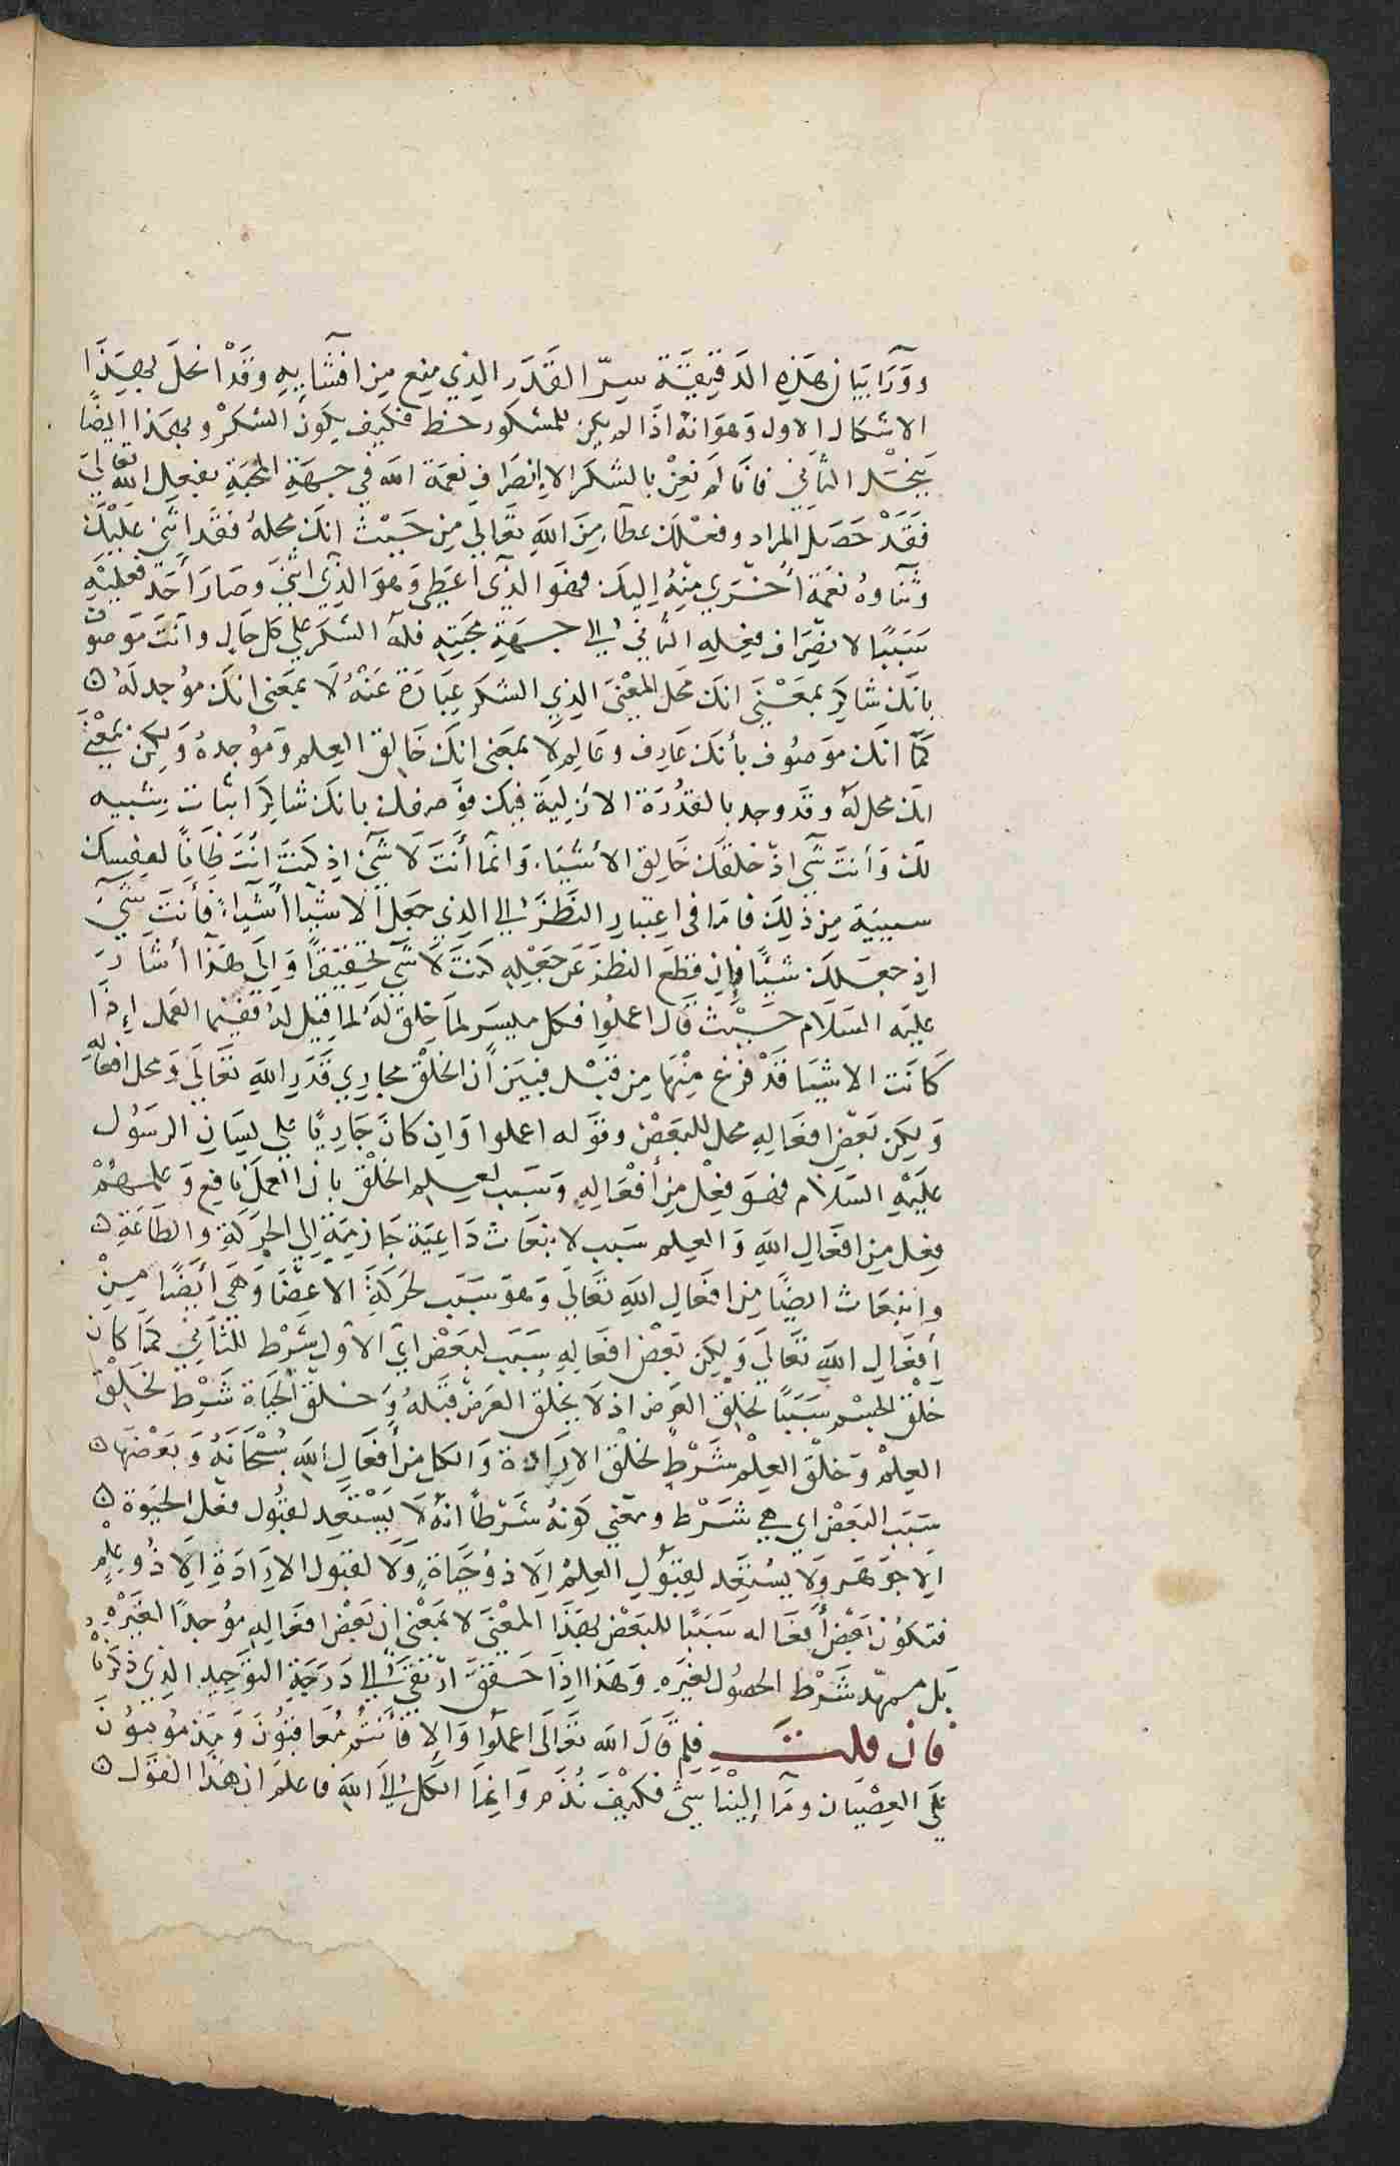 ووَرَآ بَيَان هَذِهِ الدَقِيقَة سِرّ القَدَر الذِي مِنِع مِن افشَآيِهِ وقَدْ انحَلَ بهَذَا
الاشكال الاول وَهوَانهُ اذا لم يكن للمشكور حظ فكَيف يَكون الشكرْ وبهَذا ايضًا
يَنحَل الثَاني فانا لم نعْنِ بالشكَر الا إنصَرَاف نعمَة الله في جِهَةِ المحَبَةِ بفعِل الله تعَاليَ
فَقَدْ حَصَل المراد وفعْلكَ عَطآء مِنَ اللهِ تعَالي مِن حَيْث انكَ محلهُ فقَد اثنيَ عَليْكَ
وثنآوهُ نعْمَة أُخْرَي مِنْهُ اِليكَ فهوَ الذِّي اعطي وَهوَ الذِي اثنيَ وصَارَ أحَد فعليْهِ
سَبَبًا لانصِرَاف فِعْلِهِ الثاني الي جِهَةِ مَحَبَتِهِ فلهُ الشكر علي كل حَال وانتَ مَوصُوف
بانكَ شاكِر بمعْنيَ انكَ محَل المعْنيَ الذِي الشكر عِبَارَة عَنْهُ لَا بمعنى انكَ موْجد لَهُ ن
كَمَا انكَ موصُوف بأنكَ عَارِف وعَالِم لَا بمعَنى انكَ خَالِق العِلم ومَوُجدهُ وَلكِن بمعْنيَ
انك محل لهُ وقد وجد بالقدُرَة الازلِية فيكَ فوَصفك بانكَ شاكِرَ اثبات شيئيه
لكَ وَأنتَ شَي اذ خلقَكَ خَالِق الأشيَاء وَانمآ أَنتَ لاَ شَيْ اذ كنتَ انْتَ ظَانًا لِنفسِك
سيئيَة مِن ذلِكَ فامَا في اعتبار النظَر الي الذِي جَعل الاشيآ اشيآءً فأنتَ شَيْ
اِذ جعَلكَ شيئًا فإن قطَع النظرَ عَن جَعْلِهِ كنتَ لاَ شَيَ تحقيقًا وَالَي هَذا أشارَ
عليَهِ السَلَام حَيْث قَال اعملوُا فكل ميسَر لمَا خلِق لَهُ لما قِيل لَهُ فَفيم العَمل اِذَا
كَانَت الاشيَا قَدْ فرغ مِنْهَا مِن قَبْل فبَيَن ان الخلْق مجَارِي قَدَرِ الله تعَالَي وَمحل افعَالهِ
وَلكِن بَعضَ افعَالِهِ محل للبَعْض وقوَله اعملوا وَان كانَ جَارِيًا علي لِسَانِ الرسَوُل
عليَهْ السَلاَم فهوَ فِعْل مِن أفْعَالِهِ وَسَبَب لعِلم الخلْق بان العَمل نافِع وَعلمهُمْ
فِعل مِن افعَال اللهِ وَالعِلم سَبَب لانبعَاث دَاعِيَة جَازِمَة اِلي الحركةِ والطاعَةِ ن
وانبعَاث ايضًا مِن افعَالِ اللهِ تعَالَي وَهوَ سَبَب لحَركةِ الاعضآ وَهَي أيضًا مِنْ
أفعَال اللهِ تعَالَي وَلكِن بَعْض افعَالِهِ سَبَب لبَعْض اي الاول شَرْط للثَاني كمَا كان
خَلْق الجسْم سَبَبًا لخلْق العَرض اذ لاَ يخْلق العَرض قبلهُ وَخلق الحَياة شَرْط لخلْق
العِلمْ وَخلْق العِلْم شَرْط لخلْق الارَادَة وَالكل مِن أفعَال اللهِ سُبْحَانَهُ وَبعْضهَا ن
سَبَب البَعْض اي هي شَرْط ومعْنيَ كَونهُ شَرْطاً انهُ لاَ يَسْتعَد لقبُول فعْل الحيَوة ن
اِلا جوَهَر وَلا يَسْتعَد لِقبُول العِلمْ اِلَا ذوُحَيَاةٍ وَلَا لقبَول الارَادَةِ اِلا ذُوعِلْمٍ
فتكوُن بَعْض أفعَاله سَبَبًا للبَعْض بهَذَا المعْنيَ لا بمعْنيَ ان بَعْض افعَالِهِ مُوْجدًا لغَيْرِهِ
بَل ممهد شَرْط الحصُول لغيرَه وَهَذا اِذَا حَقق ارْتقيَ الي دَرَجَةِ التوَحِيدِ الذِي ذكَرْنَاهُ
فان قلت فَلِم قَالَ الله تعَالَى اعملَوُا وَاِلا فَأَنتُم مُعَاقبَوُن وَمذمُومُونَ
علَى العِصْيَان ومَآ إِليْنَا شَيْ فكَيْفَ نُذَم وَانِمَا الكَل الي اللهَ فاعلم ان هَذا القوَل ن